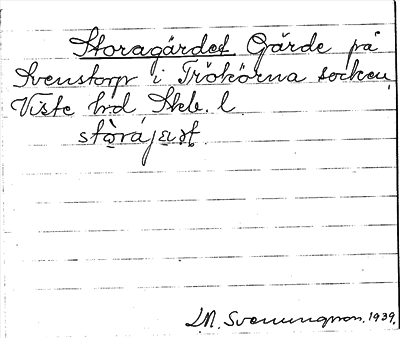 Storagärdet Gärde på
Svenstorp i Trökörna socken,
Viste hrd Skb. l.
L.N. Svenungsson. 1939.